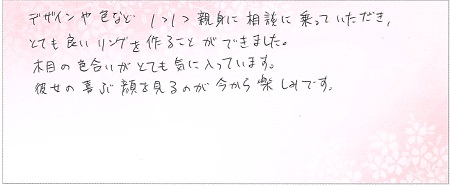 デザインや色など いろいろ親身に相談に乗っていただき,
とても良いリングを作ることができました。
木目の色合いがとても気に入っています。
彼女の喜ぶ顔を見るのが今から楽しみです。